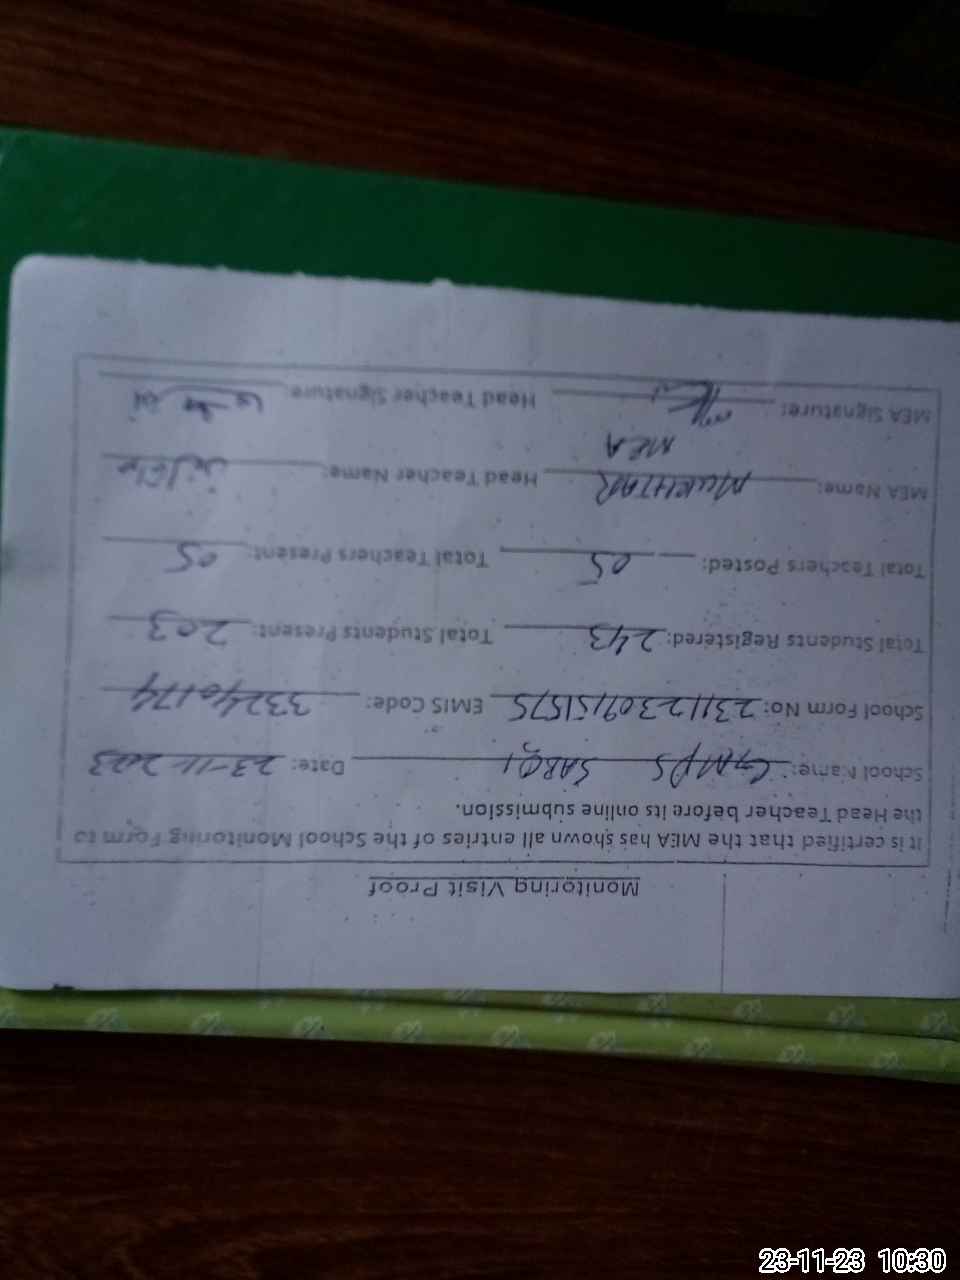 Monitoring Visit Proof
It is certified that the MEA has shown all entries of the School Monitoring Form to
the Head Teacher before its online submission.
School Name: GMPS SARQI Date: 23-11-2023
School Form No: 231123091515175 EMIS Code: 33240174
Total Students Registered: 243 Total Students Present: 203
Total Teachers Posted: 05 Total Teachers Present: 05
MEA Name: MUKHTAR Head Teacher Name:
MEA
MEA Signature: Head Teacher Signature:
23-11-23 10:30